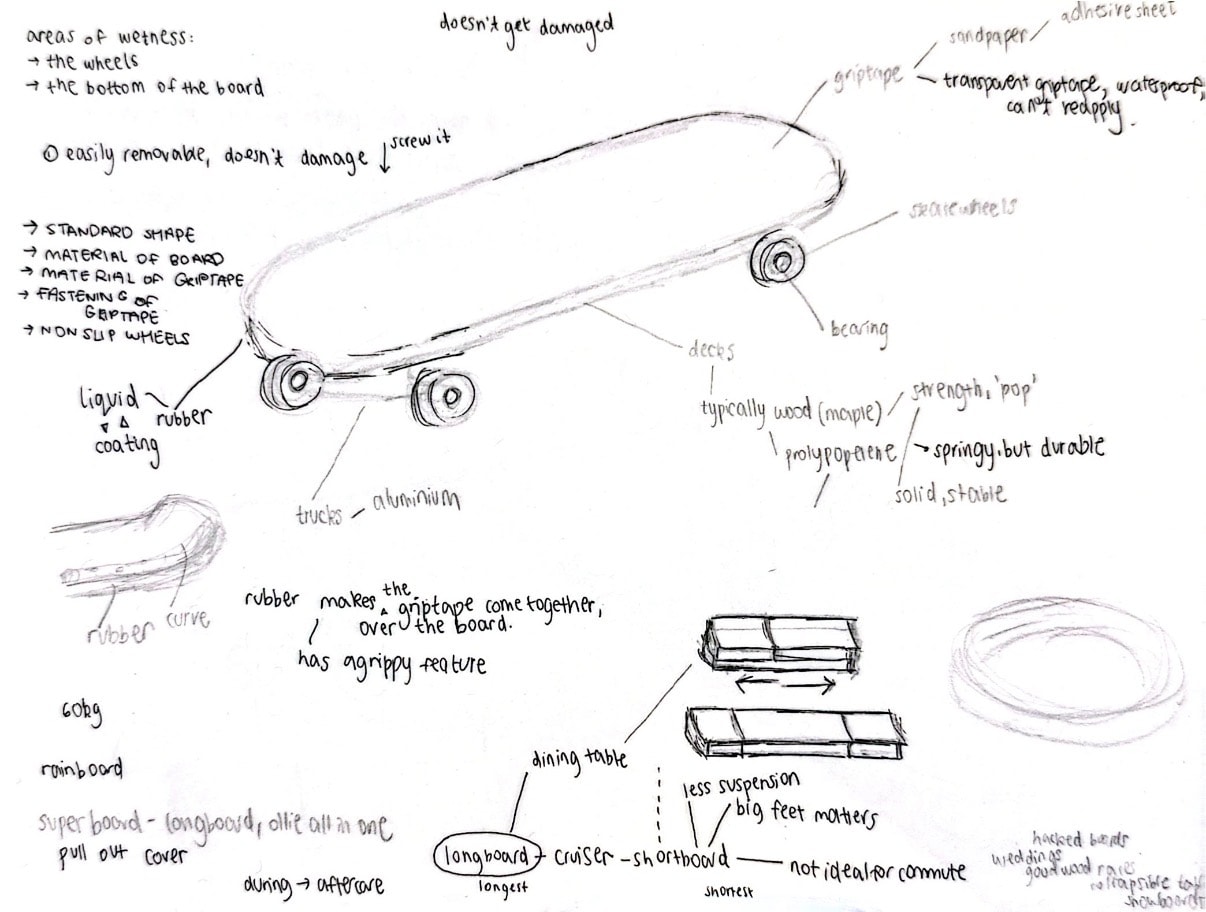 doesn't get damaged
adhesive sheet
areas of wetness:
→ the wheels
→ the bottom of the board
sandpaper
griptape
transparent griptape, waterproof,
can't reapply.
① easily removable, doesn't damage
↓ screw it
skate wheels
→ STANDARD SHAPE
→ MATERIAL OF BOARD
→ MATERIAL OF GRIPTAPE
→ FASTENING OF
GRIPTAPE
→ NON SLIP WHEELS
bearing
decks
liquid
rubber
coating
typically wood (maple)
strength, 'pop'
prolypoperene
→ springy, but durable
solid, stable
trucks
aluminium
rubber
curve
rubber makes the griptape come together,
over the board.
has a grippy feature
60kg
rainboard
dining table
super board - longboard, ollie all in one
pull out cover
less suspension
big feet matters
longboard - cruiser - shortboard
not ideal for commute
longest
shortest
during → aftercare
hacked boards
weddings
goodwood races